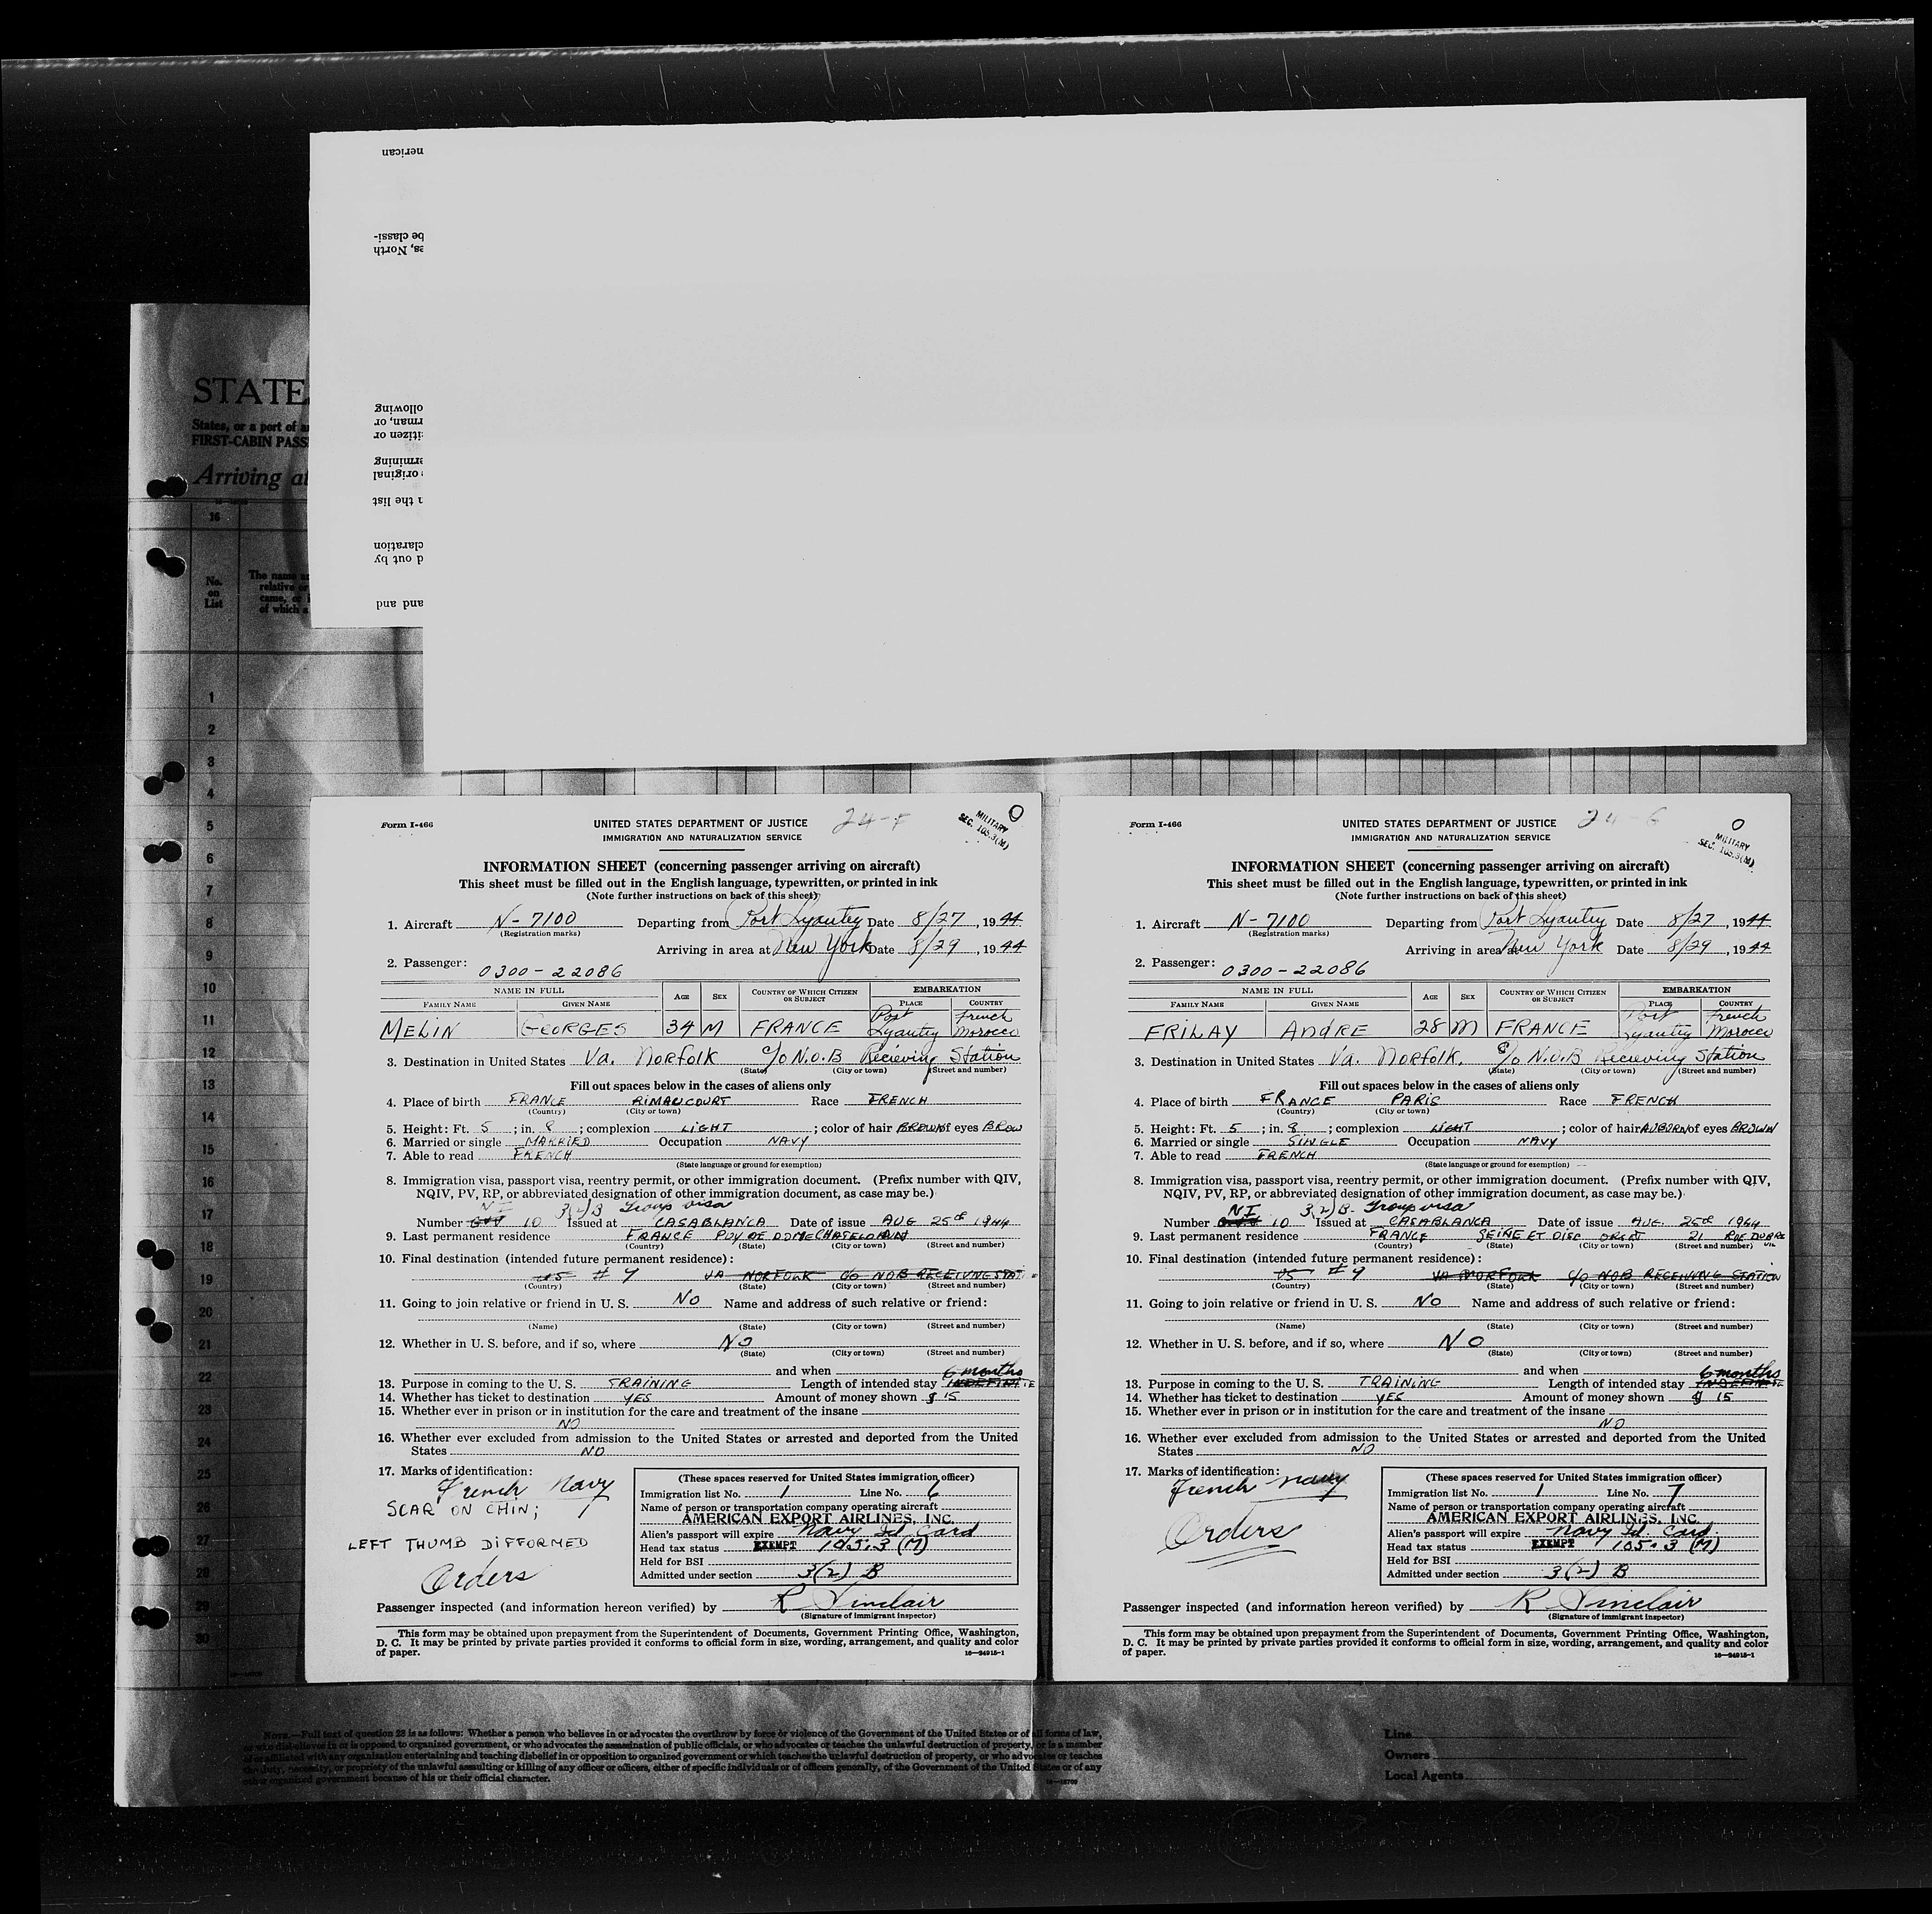 nerican
be classi-
es, North
ollowing
rman, or
itizen or
ermining
original
n the list
claration
d out by
and and
STATE
States, or a port of a
FIRST-CABIN PASS
Arriving at
16
No.
on
List
The name a
relative or
came, or
of which a
1
2
3
4
5
6
7
8
9
10
11
12
13
14
15
16
17
18
19
20
21
22
23
24
25
26
27
28
29
30
Form I-466
UNITED STATES DEPARTMENT OF JUSTICE
IMMIGRATION AND NATURALIZATION SERVICE
24-F
MILITARY
SEC. 105.3(M)
INFORMATION SHEET (concerning passenger arriving on aircraft)
This sheet must be filled out in the English language, typewritten, or printed in ink
(Note further instructions on back of this sheet)
1. Aircraft N-7100 Departing from Port Lyautey Date 8/27, 1944
(Registration marks)
Arriving in area at New York Date 8/29, 1944
2. Passenger: 0300-22086
NAME IN FULL AGE SEX COUNTRY OF WHICH CITIZEN OR SUBJECT EMBARKATION
FAMILY NAME GIVEN NAME PLACE COUNTRY
MELIN GEORGES 34 M FRANCE Port Lyautey French Morocco
3. Destination in United States Va. Norfolk c/o N.O.B Recieving Station
(State) (City or town) (Street and number)
Fill out spaces below in the cases of aliens only
4. Place of birth FRANCE RIMAUCOURT Race FRENCH
(Country) (City or town)
5. Height: Ft. 5; in. 8; complexion LIGHT; color of hair BROWN of eyes BROW
6. Married or single MARRIED Occupation NAVY
7. Able to read FRENCH
(State language or ground for exemption)
8. Immigration visa, passport visa, reentry permit, or other immigration document. (Prefix number with QIV,
NQIV, PV, RP, or abbreviated designation of other immigration document, as case may be.)
NI 3(2)B Group visa
Number 10 Issued at CASABLANCA Date of issue AUG 25d 1944
9. Last permanent residence FRANCE PUY DE DOME
(Country) (State) (City or town) (Street and number)
10. Final destination (intended future permanent residence):
US # 9 VA NORFOLK C/O NOB RECEIVING STAT
(Country) (State) (City or town) (Street and number)
11. Going to join relative or friend in U. S. NO Name and address of such relative or friend:
(Name) (State) (City or town) (Street and number)
12. Whether in U. S. before, and if so, where NO
(State) (City or town) (Street and number)
and when
6 months
13. Purpose in coming to the U. S. TRAINING Length of intended stay INDEFINITE
14. Whether has ticket to destination YES Amount of money shown $ 15
15. Whether ever in prison or in institution for the care and treatment of the insane
NO
16. Whether ever excluded from admission to the United States or arrested and deported from the United
States NO
17. Marks of identification:
French Navy
SCAR ON CHIN;
LEFT THUMB DIFFORMED
Orders
(These spaces reserved for United States immigration officer)
Immigration list No. 1 Line No. 6
Name of person or transportation company operating aircraft
AMERICAN EXPORT AIRLINES, INC.
Alien's passport will expire Navy Id. Card
Head tax status EXEMPT 105.3 (M)
Held for BSI
Admitted under section 3(2) B
Passenger inspected (and information hereon verified) by R Sinclair
(Signature of immigrant inspector)
This form may be obtained upon prepayment from the Superintendent of Documents, Government Printing Office, Washington,
D. C. It may be printed by private parties provided it conforms to official form in size, wording, arrangement, and quality and color
of paper.
16—24915-1
Form I-466
UNITED STATES DEPARTMENT OF JUSTICE
IMMIGRATION AND NATURALIZATION SERVICE
24-G
MILITARY
SEC. 105.3(M)
INFORMATION SHEET (concerning passenger arriving on aircraft)
This sheet must be filled out in the English language, typewritten, or printed in ink
(Note further instructions on back of this sheet)
1. Aircraft N-7100 Departing from Port Lyautey Date 8/27, 1944
(Registration marks)
Arriving in area at New York Date 8/29, 1944
2. Passenger: 0300-22086
NAME IN FULL AGE SEX COUNTRY OF WHICH CITIZEN OR SUBJECT EMBARKATION
FAMILY NAME GIVEN NAME PLACE COUNTRY
FRILAY ANDRE 28 M FRANCE Port Lyautey French Morocco
3. Destination in United States Va. Norfolk, c/o N.O.B Recieving Station
(State) (City or town) (Street and number)
Fill out spaces below in the cases of aliens only
4. Place of birth FRANCE PARIS Race FRENCH
(Country) (City or town)
5. Height: Ft. 5; in. 8; complexion LIGHT; color of hair AUBURN of eyes BROWN
6. Married or single SINGLE Occupation NAVY
7. Able to read FRENCH
(State language or ground for exemption)
8. Immigration visa, passport visa, reentry permit, or other immigration document. (Prefix number with QIV,
NQIV, PV, RP, or abbreviated designation of other immigration document, as case may be.)
NI 3(2)B- Group visa
Number 10 Issued at CASABLANCA Date of issue AUG. 25d 1944
9. Last permanent residence FRANCE SEINE ET OISE 21 RUE
(Country) (State) (City or town) (Street and number)
10. Final destination (intended future permanent residence):
US # 9 VA NORFOLK C/O NOB RECEIVING STATION
(Country) (State) (City or town) (Street and number)
11. Going to join relative or friend in U. S. NO Name and address of such relative or friend:
(Name) (State) (City or town) (Street and number)
12. Whether in U. S. before, and if so, where NO
(State) (City or town) (Street and number)
and when
6 months
13. Purpose in coming to the U. S. TRAINING Length of intended stay INDEFINITE
14. Whether has ticket to destination YES Amount of money shown $ 15
15. Whether ever in prison or in institution for the care and treatment of the insane
NO
16. Whether ever excluded from admission to the United States or arrested and deported from the United
States NO
17. Marks of identification:
French Navy
Orders
(These spaces reserved for United States immigration officer)
Immigration list No. 1 Line No. 7
Name of person or transportation company operating aircraft
AMERICAN EXPORT AIRLINES, INC.
Alien's passport will expire Navy Id. Card.
Head tax status EXEMPT 105.3 (M)
Held for BSI
Admitted under section 3(2) B
Passenger inspected (and information hereon verified) by R Sinclair
(Signature of immigrant inspector)
This form may be obtained upon prepayment from the Superintendent of Documents, Government Printing Office, Washington,
D. C. It may be printed by private parties provided it conforms to official form in size, wording, arrangement, and quality and color
of paper.
16—24915-1
NOTE.—Full text of question 28 is as follows: Whether a person who believes in or advocates the overthrow by force or violence of the Government of the United States or of all forms of law,
or who disbelieves in or is opposed to organized government, or who advocates the assassination of public officials, or who advocates or teaches the unlawful destruction of property, or is a member
of or affiliated with any organization entertaining and teaching disbelief in or opposition to organized government or which teaches the unlawful destruction of property, or who advocates or teaches
the duty, necessity, or propriety of the unlawful assaulting or killing of any officer or officers, either of specific individuals or of officers generally, of the Government of the United States or of any
other organized government because of his or their official character.
Line
Owners
Local Agents